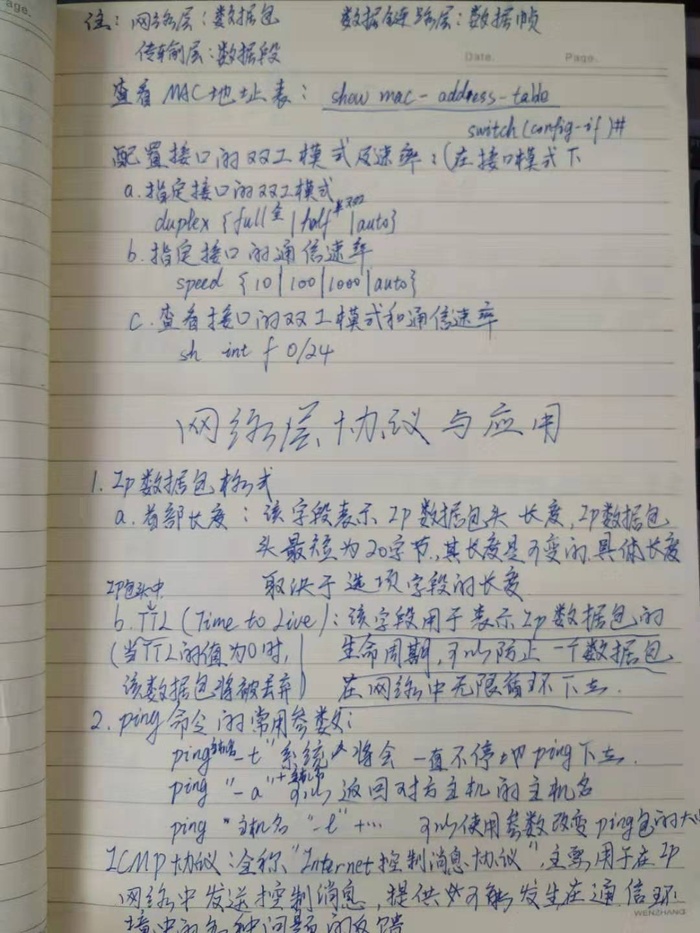 age.
注：网络层：数据包 数据链路层：数据帧
传输层：数据段
Date. Page.
查看MAC地址表：show mac-address-table
switch(config-if)#
配置接口的双工模式及速率：(在接口模式下
a.指定接口的双工模式
duplex {full全|half半双工|auto}
b.指定接口的通信速率
speed {10|100|1000|auto}
c.查看接口的双工模式和通信速率
sh int f 0/24
网络层协议与应用
1. Ip数据包格式
a.首部长度：该字段表示Ip数据包头长度,Ip数据包
头最短为20字节,其长度是可变的,具体长度
取决于选项字段的长度
IP包头中
b.TTL(Time to Live)：该字段用于表示Ip数据包的
(当TTL的值为0时, 生命周期,可以防止一个数据包
该数据包将被丢弃) 在网络中无限循环下去.
2. ping命令的常用参数：
ping "-t" 系统 将会一直不停地ping下去.
ping "-a"+ 可以返回对方主机的主机名
ping "主机名"-l"+… 可以使用参数改变ping包的大小
ICMP协议：全称"Internet控制消息协议",主要用于在IP
网络中发送控制消息,提供 可能发生在通信环
境中的各种问题的反馈
WENZHANG